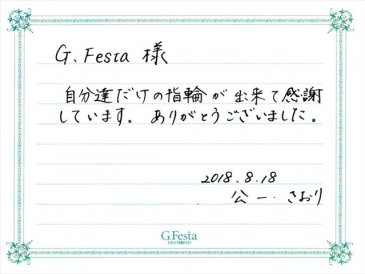 G.Festa 様
自分達だけの指輪が出来て感謝
しています。ありがとうございました。
2018.8.18
公一・さおり
G.Festa
DIAMOND